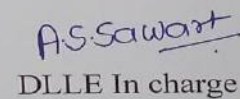 A.S.Sawant
DLLE In charge